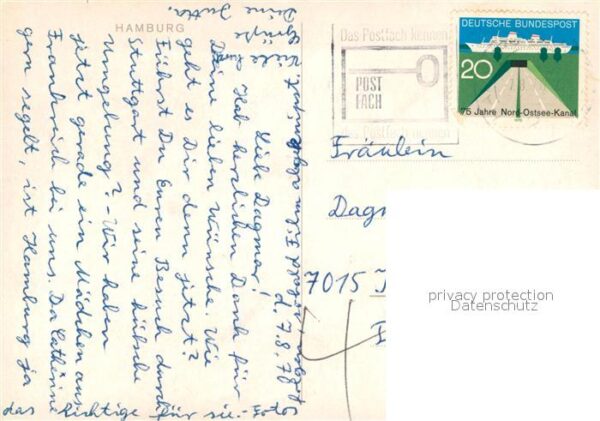 HAMBURG
d. 7.8.70
Liebe Dagmar!
Hab herzlichen Dank für
Deine lieben Wünsche. Wie
geht es Dir denn jetzt?
Führst Du Euren Besuch durch
Stuttgart und seine hübsche
Umgebung? - Wir haben
jetzt gerade ein Mädchen aus
Frankreich bei uns. Da Cathérine
gern segelt, ist Hamburg ja
das Richtige für sie. - Fotos
Viele
Grüße
Deine Jutta.
Das Postfach kennen
POST
FACH
das Postfach nennen
DEUTSCHE BUNDESPOST
20
75 Jahre Nord-Ostsee-Kanal
Fräulein
7015
privacy protection
Datenschutz